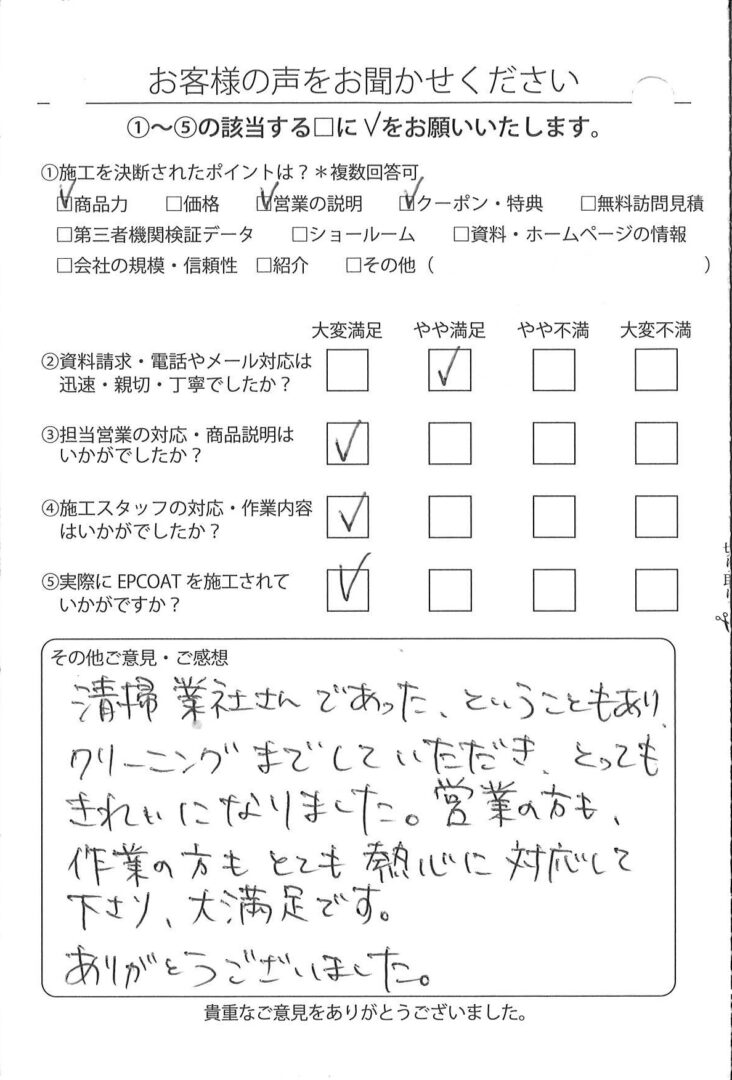 お客様の声をお聞かせください
①～⑤の該当する□に√をお願いいたします。
①施工を決断されたポイントは？＊複数回答可
☑商品力 □価格 ☑営業の説明 ☑クーポン・特典 □無料訪問見積
□第三者機関検証データ □ショールーム □資料・ホームページの情報
□会社の規模・信頼性 □紹介 □その他（ ）
大変満足 やや満足 やや不満 大変不満
②資料請求・電話やメール対応は
迅速・親切・丁寧でしたか？ □ ☑ □ □
③担当営業の対応・商品説明は
いかがでしたか？ ☑ □ □ □
④施工スタッフの対応・作業内容
はいかがでしたか？ ☑ □ □ □
⑤実際に EPCOAT を施工されて
いかがですか？ ☑ □ □ □
その他ご意見・ご感想
清掃業社さんであった、ということもあり、
クリーニングまでしていただき、とっても
きれいになりました。営業の方も、
作業の方もとても熱心に対応して
下さり、大満足です。
ありがとうございました。
貴重なご意見をありがとうございました。